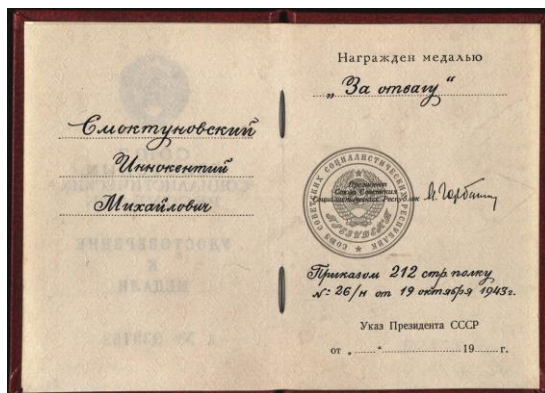 Смоктуновский
Иннокентий
Михайлович
Награжден медалью
„За отвагу“
СОЮЗ СОВЕТСКИХ СОЦИАЛИСТИЧЕСКИХ РЕСПУБЛИК
ПРЕЗИДЕНТ
Президент
Союза Советских
Социалистических Республик
М. Горбачев
Приказом 212 стр. полку
№ 26/н от 19 октября 1943г.
Указ Президента СССР
от „......“ .................... 19...... г.
УДОСТОВЕРЕНИЕ
К
МЕДАЛИ